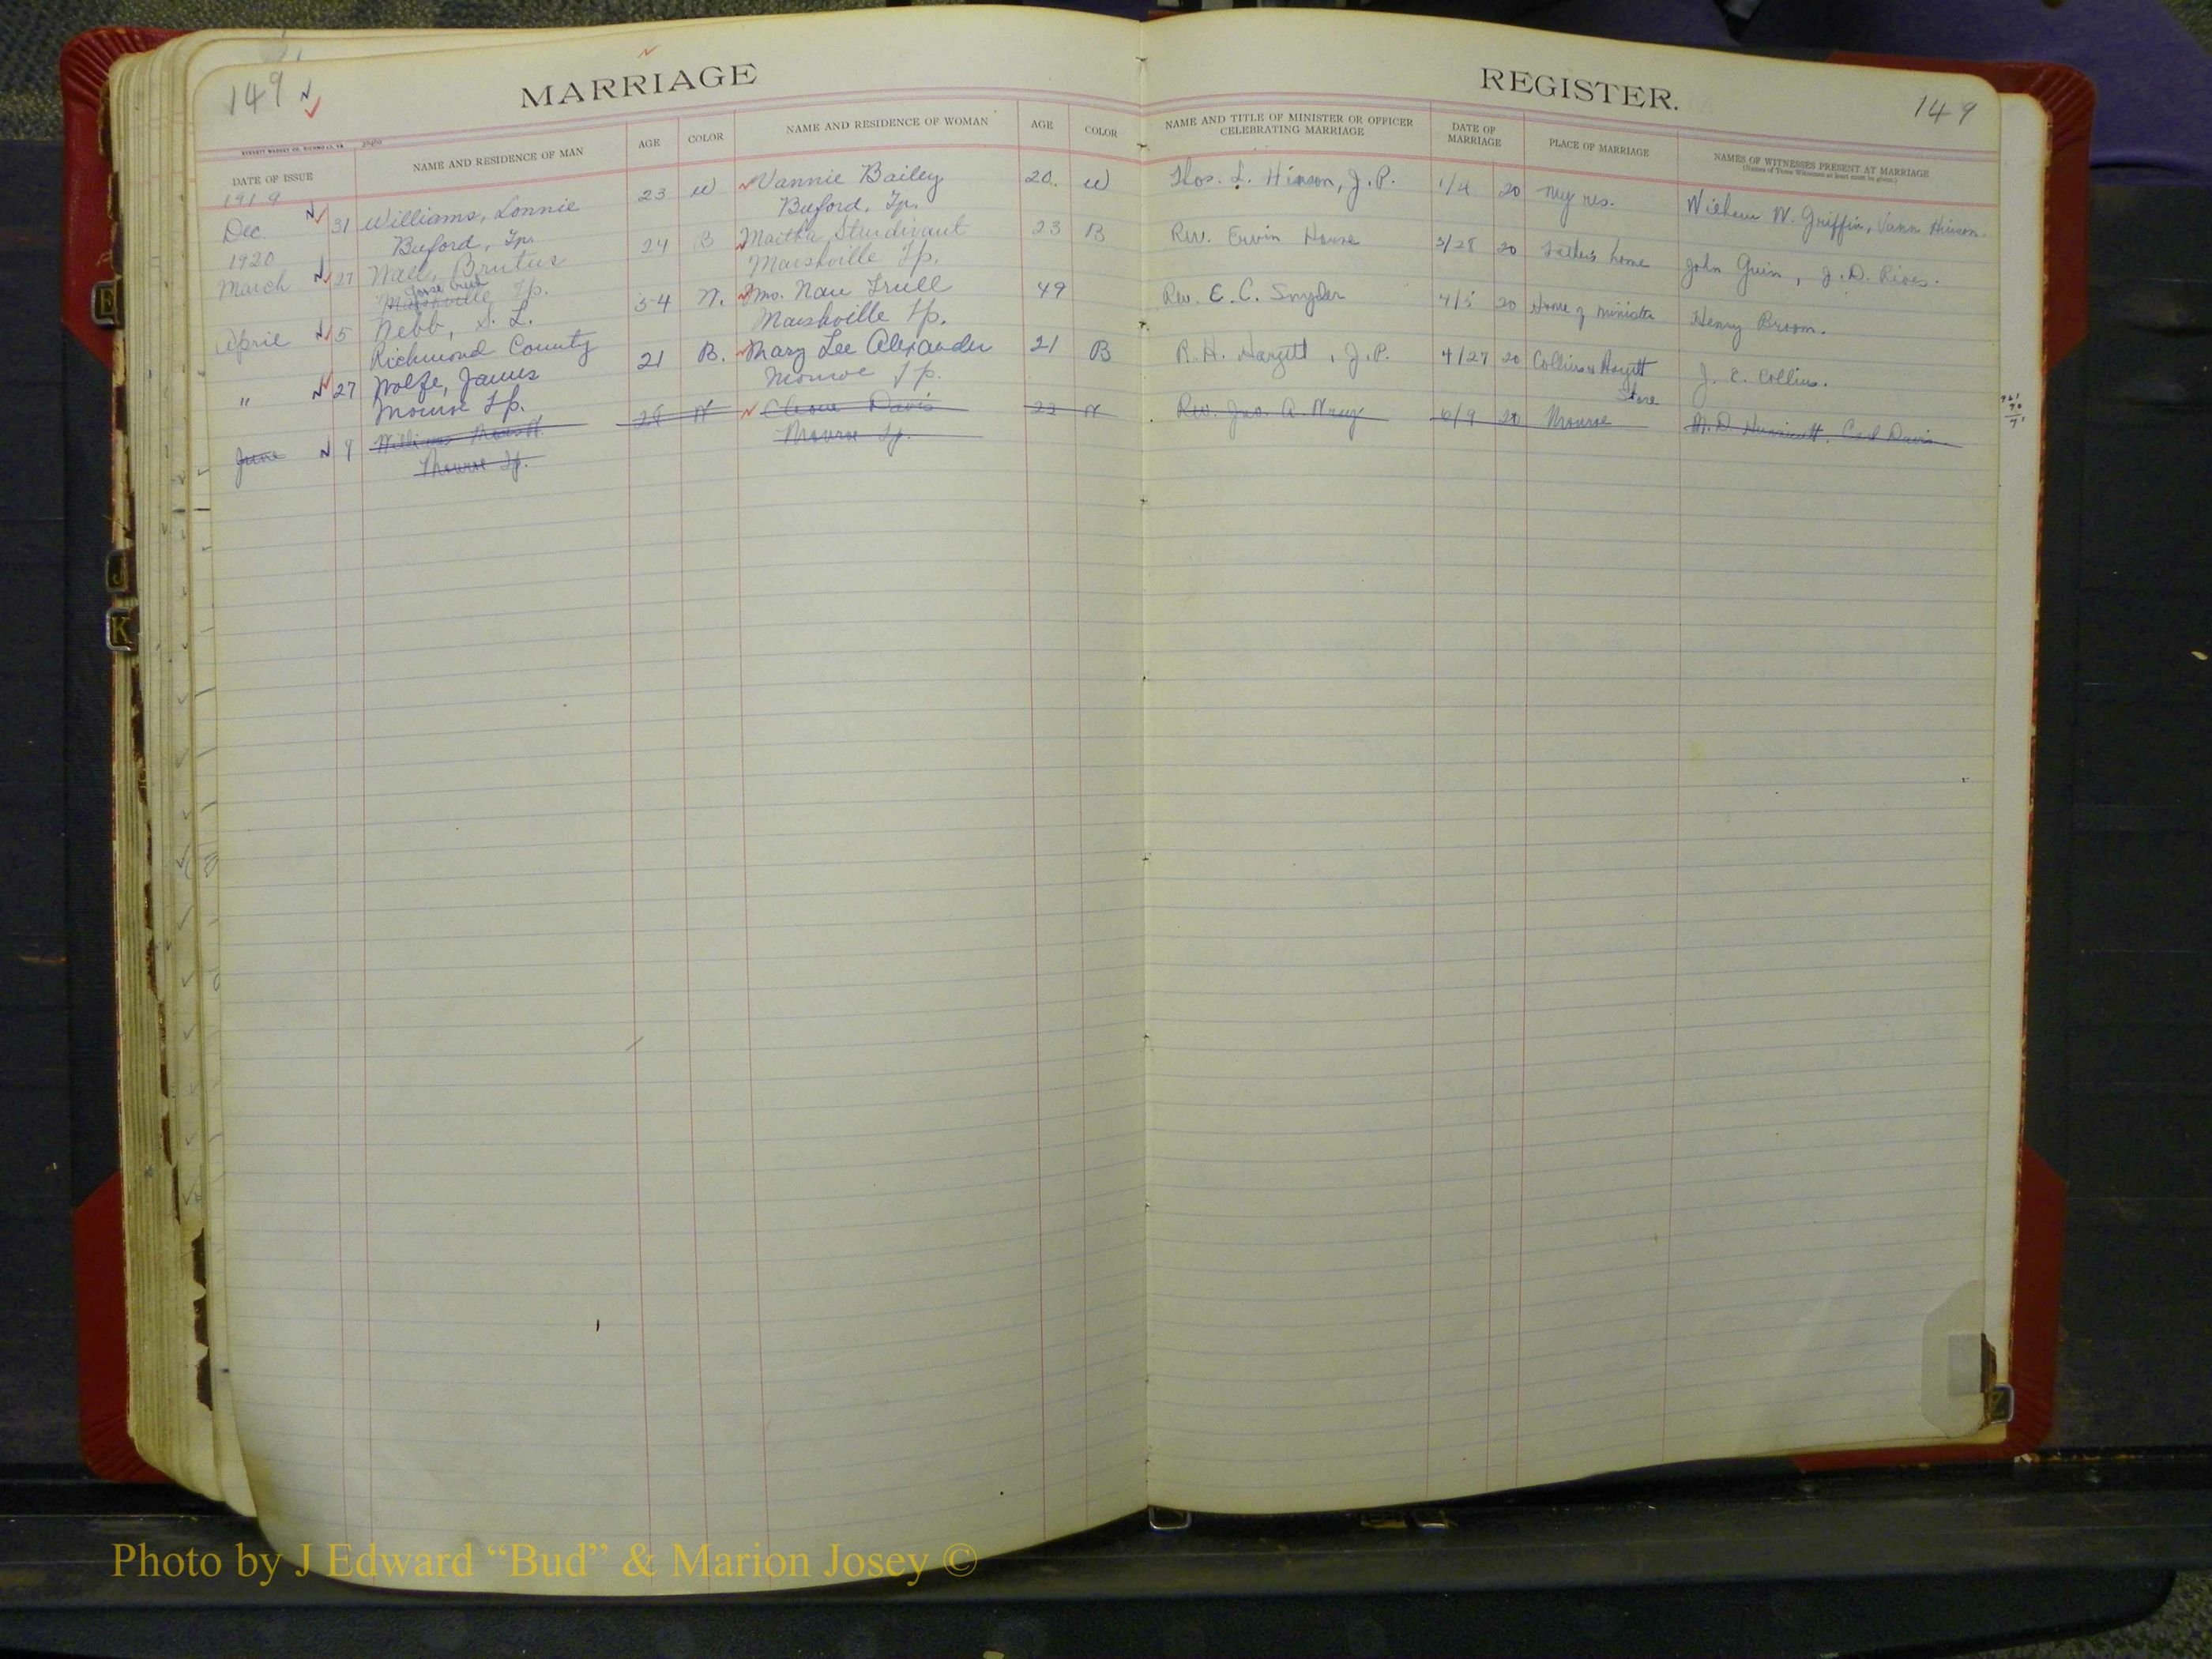 149
MARRIAGE
REGISTER.
149
EVERETT WADDEY CO. RICHMOND, VA
DATE OF ISSUE
NAME AND RESIDENCE OF MAN
AGE
COLOR
NAME AND RESIDENCE OF WOMAN
AGE
COLOR
NAME AND TITLE OF MINISTER OR OFFICER
CELEBRATING MARRIAGE
DATE OF
MARRIAGE
PLACE OF MARRIAGE
NAMES OF WITNESSES PRESENT AT MARRIAGE
(Names of Three Witnesses at least must be given.)
1919
Dec. 31 Williams, Lonnie 23 W Vannie Bailey 20. W Thos. L. Hinson, J.P. 1/4 20 my res. William W. Griffin, Vann Hinson.
Buford, Tp. Buford, Tp.
1920
March 27 Wall, Brutus 24 B Martha Sturdivant 23 B Rev. Ervin House 3/28 20 Father's home John Guin, J.D. Rives.
Goose Creek
Marshville Tp. Marshville Tp.
April 5 Webb, S. L. 54 W. Mrs. Nan Trull 49 Rev. E. C. Snyder 4/5 20 Home of minister Henry Broom.
Richmond County Marshville Tp.
" 27 Wolfe, James 21 B. Mary Lee Alexander 21 B R. H. Hargett, J.P. 4/27 20 Collins & Hargett J. E. Collins.
Store
Monroe Tp. Monroe Tp.
June 9 Williams 28 W Cleone Davis 22 W Rev. Jno. A. Wray 6/9 20 Monroe M. D. Hunnicutt, Carl Davis
Monroe Tp. Monroe Tp.
E
J
K
Z
Photo by J Edward “Bud” & Marion Josey ©